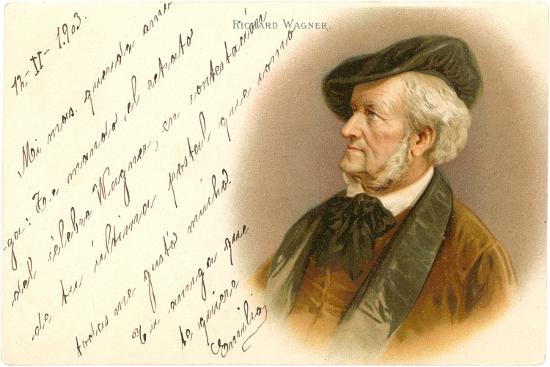 RICHARD WAGNER.
12-II-1903.
Mi mas querida ami
ga: Te mando el retrato
del célebre Wagner, en contestación
de tu última postal que como
todas me gustó mucho.
Tu amiga que
te quiere
Emilia